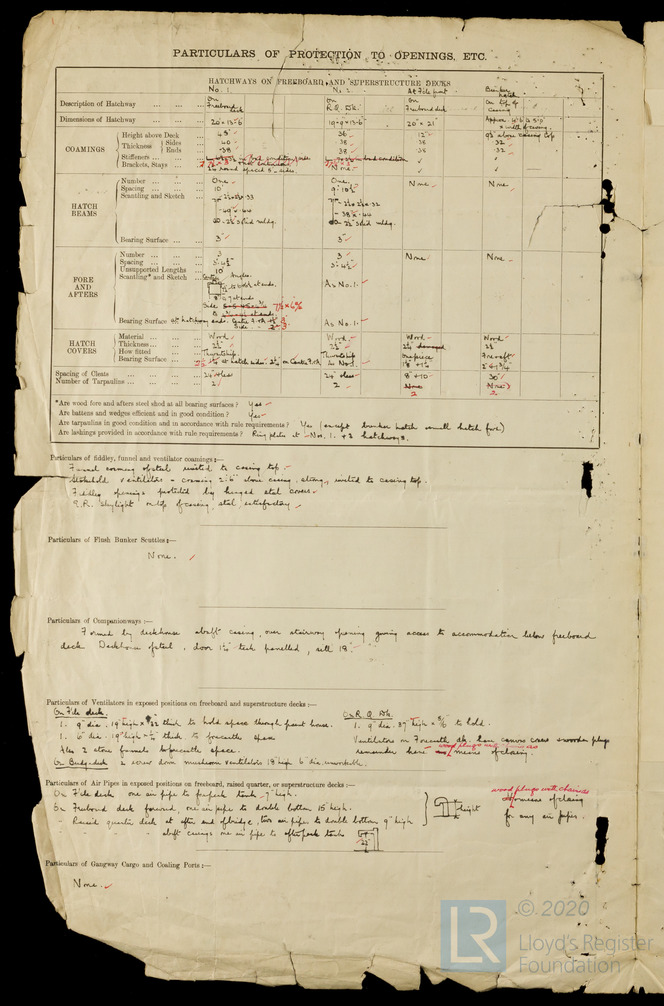 PARTICULARS OF PROTECTION TO OPENINGS, ETC.
HATCHWAYS ON FREEBOARD AND SUPERSTRUCTURE DECKS
No. 1. No. 2 At F'cle front Bunker hatch
Description of Hatchway ... On Freeboard deck On R.Q. Dk. On Freeboard deck On top of Casing
Dimensions of Hatchway ... 20' × 13'-6 19'-9 × 13'-6" 20" × 21"
COAMINGS
Height above Deck ... 45" 36 12" 9½ above casing top
Thickness { Sides ... .40 38 .38 .32
{ Ends ... .38 38 .38 .32
Stiffeners
Brackets, Stays ... None
HATCH BEAMS
Number ... One One. None. None.
Spacing ... 10' 9'-10½"
Scantling and Sketch
Bearing Surface ... 3" 3"
FORE AND AFTERS
Number ... 3 3 None None.
Spacing ... 3'-4½" 3'-4½"
Unsupported Lengths ... 10'
Scantling* and Sketch As No. 1.
Bearing Surface at hatchway ends As No. 1.
HATCH COVERS
Material ... Wood Wood Wood Wood
Thickness ... 2½" 2½" 2½ 2½
How fitted ... Thwartship Thwartship One piece Fore & aft
Bearing Surface
Spacing of Cleats ... 24" & less 24" & less 8" & 10 30"
Number of Tarpaulins ... 2 2 None 2 None 2
*Are wood fore and afters steel shod at all bearing surfaces? Yes
Are battens and wedges efficient and in good condition? Yes
Are tarpaulins in good condition and in accordance with rule requirements? Yes (except bunker hatch & small hatch fore)
Are lashings provided in accordance with rule requirements? Ring plates at Nos. 1. & 2 hatchways.
Particulars of fiddley, funnel and ventilator coamings:—
Funnel coaming of steel riveted to casing top.
Stokehold ventilators - coaming 2'6" above casing, strong, riveted to casing top.
Fiddley openings protected by hinged steel covers.
E.R. skylight on top of casing, steel, satisfactory
Particulars of Flush Bunker Scuttles:—
None.
Particulars of Companionways:—
Formed by deckhouse abaft casing, over stairway opening giving access to accommodation below freeboard
deck. Deckhouse of steel, door 1½" teek panelled, sill 18".
Particulars of Ventilators in exposed positions on freeboard and superstructure decks:—
On F'cle deck. On R.Q. Dk.
1. 9" dia. 19" high × .32 thick to hold space through paint house. 1. 9" dia. 37" high to hold.
1. 6" dia. 19" high thick to forecastle space Ventilators on Forecastle dk. have canvas covers & wooden plugs
Also 2 stove funnels to forecastle space. remainder have wood plugs means of closing.
On Bridge deck 2 screw down mushroom ventilators 18" high 6" dia. workable.
Particulars of Air Pipes in exposed positions on freeboard, raised quarter, or superstructure decks:—
On F'cle deck one air pipe to forepeak tank 7" high. wood plugs with chains as
On Freeboard deck forward, one air pipe to double bottom 15" high. height means of closing
" Raised quarter deck at after end of bridge, two air pipes to double bottom 9" high for any air pipes.
" " " abaft casings one air pipe to afterpeak tank
Particulars of Gangway Cargo and Coaling Ports:—
None.
LR
© 2020
Lloyd's Register
Foundation